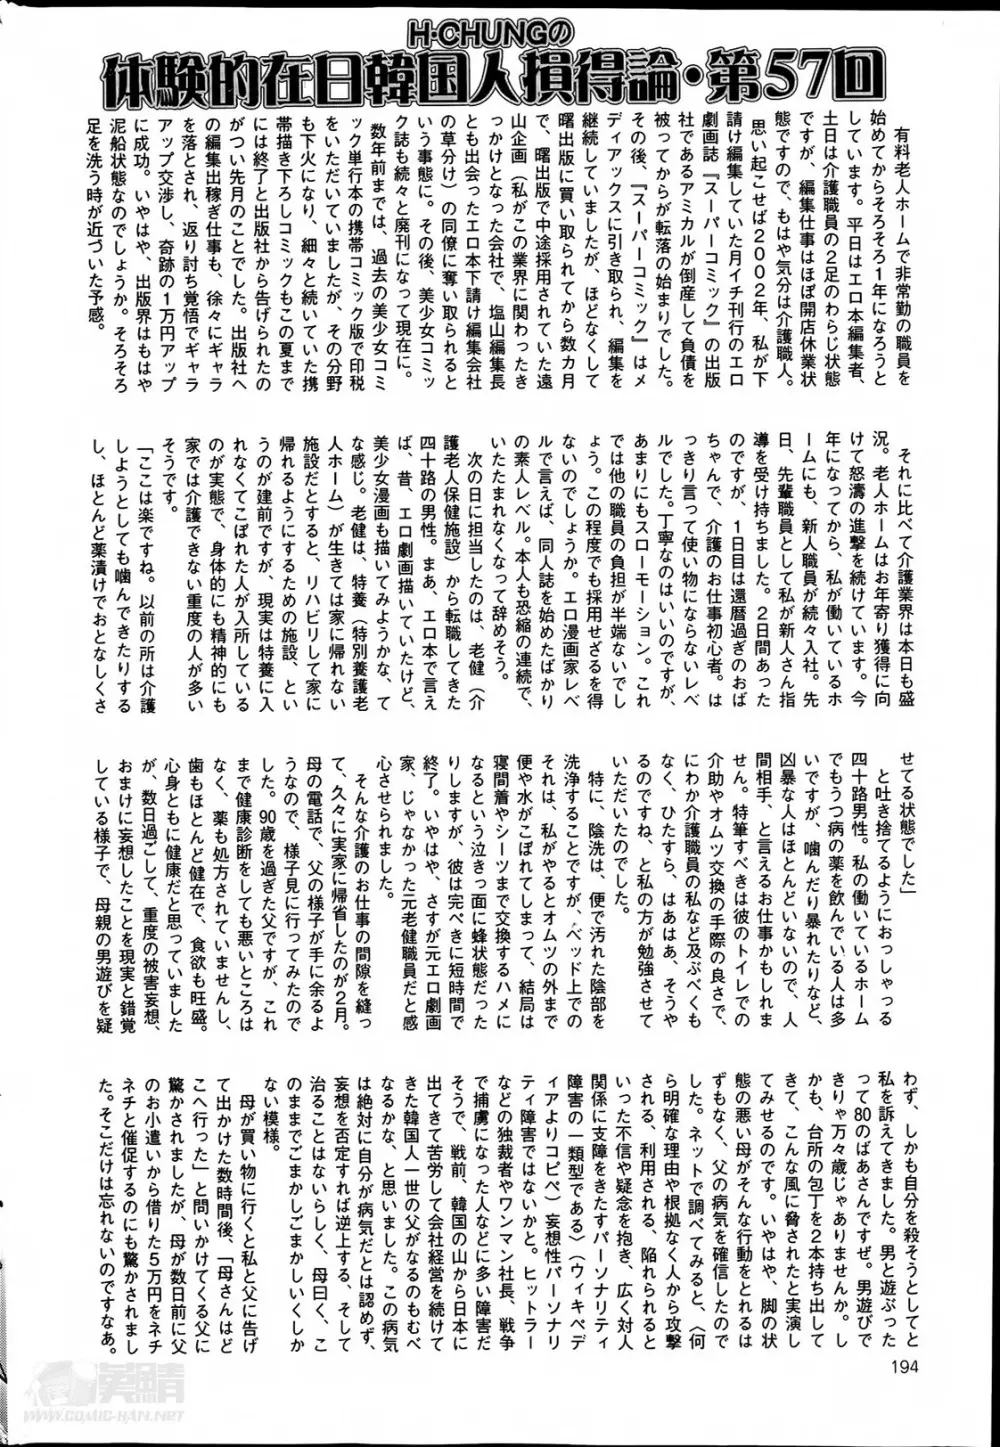 H・CHUNGの
体験的在日韓国人損得論・第57回
　有料老人ホームで非常勤の職員を
始めてからそろそろ1年になろうと
しています。平日はエロ本編集者、
土日は介護職員の2足のわらじ状態
ですが、編集仕事はほぼ開店休業状
態ですので、もはや気分は介護職人。
　思い起こせば2002年、私が下
請け編集していた月イチ刊行のエロ
劇画誌『スーパーコミック』の出版
社であるアミカルが倒産して負債を
被ってからが転落の始まりでした。
その後、『スーパーコミック』はメ
ディアックスに引き取られ、編集を
継続していましたが、ほどなくして
曙出版に買い取られてから数カ月
で、曙出版で中途採用されていた遠
山企画（私がこの業界に関わったき
っかけとなった会社で、塩山編集長
とも出会ったエロ本下請け編集会社
の草分け）の同僚に奪い取られると
いう事態に。その後、美少女コミッ
ク誌も続々と廃刊になって現在に。
　数年前までは、過去の美少女コミ
ック単行本の携帯コミック版で印税
をいただいていましたが、その分野
も下火になり、細々と続いていた携
帯描き下ろしコミックもこの夏まで
には終了と出版社から告げられたの
がつい先月のことでした。出版社へ
の編集出稼ぎ仕事も、徐々にギャラ
を落とされ、返り討ち覚悟でギャラ
アップ交渉し、奇跡の1万円アップ
に成功。いやはや、出版界はもはや
泥船状態なのでしょうか。そろそろ
足を洗う時が近づいた予感。
　それに比べて介護業界は本日も盛
況。老人ホームはお年寄り獲得に向
けて怒濤の進撃を続けています。今
年になってから、私が働いているホ
ームにも、新人職員が続々入社。先
日、先輩職員として私が新人さん指
導を受け持ちました。2日間あった
のですが、1日目は還暦過ぎのおば
ちゃんで、介護のお仕事初心者。は
っきり言って使い物にならないレベ
ルでした。丁寧なのはいいのですが、
あまりにもスローモーション。これ
では他の職員の負担が半端ないでし
ょう。この程度でも採用せざるを得
ないのでしょうか。エロ漫画家レベ
ルで言えば、同人誌を始めたばかり
の素人レベル。本人も恐縮の連続で、
いたたまれなくなって辞めそう。
　次の日に担当したのは、老健（介
護老人保健施設）から転職してきた
四十路の男性。まあ、エロ本で言え
ば、昔、エロ劇画描いていたけど、
美少女漫画も描いてみようかな、て
な感じ。老健は、特養（特別養護老
人ホーム）が生きては家に帰れない
施設だとすると、リハビリして家に
帰れるようにするための施設、とい
うのが建前ですが、現実は特養に入
れなくてこぼれた人が入所している
のが実態で、身体的にも精神的にも
家では介護できない重度の人が多い
そうです。
「ここは楽ですね。以前の所は介護
しようとしても噛んできたりする
し、ほとんど薬漬けでおとなしくさ
せてる状態でした」
　と吐き捨てるようにおっしゃる
四十路男性。私の働いているホーム
でもうつ病の薬を飲んでいる人は多
いですが、噛んだり暴れたりなど、
凶暴な人はほとんどいないので、人
間相手、と言えるお仕事かもしれま
せん。特筆すべきは彼のトイレでの
介助やオムツ交換の手際の良さで、
にわか介護職員の私など及ぶべくも
なく、ひたすら、はあはあ、そうや
るのですね、と私の方が勉強させて
いただいたのでした。
　特に、陰洗は、便で汚れた陰部を
洗浄することですが、ベッド上での
それは、私がやるとオムツの外まで
便や水がこぼれてしまって、結局は
寝間着やシーツまで交換するハメに
なるという泣きっ面に蜂状態だった
りしますが、彼は完ぺきに短時間で
終了。いやはや、さすが元エロ劇画
家、じゃなかった元老健職員だと感
心させられました。
　そんな介護のお仕事の間隙を縫っ
て、久々に実家に帰省したのが2月。
母の電話で、父の様子が手に余るよ
うなので、様子見に行ってみたので
した。90歳を過ぎた父ですが、これ
まで健康診断をしても悪いところは
なく、薬も処方されていませんし、
歯もほとんど健在で、食欲も旺盛。
心身ともに健康だと思っていました
が、数日過ごして、重度の被害妄想、
おまけに妄想したことを現実と錯覚
している様子で、母親の男遊びを疑
わず、しかも自分を殺そうとしてと
私を訴えてきました。男と遊ぶった
って80のばあさんですぜ。男遊びで
きりゃ万々歳じゃありませんか。し
かも、台所の包丁を2本持ち出して
きて、こんな風に脅されたと実演し
てみせるのです。いやはや、脚の状
態の悪い母がそんな行動をとれるは
ずもなく、父の病気を確信したので
した。ネットで調べてみると、〈何
ら明確な理由や根拠なく人から攻撃
される、利用される、陥れられると
いった不信や疑念を抱き、広く対人
関係に支障をきたすパーソナリティ
障害の一類型である〉（ウィキペデ
ィアよりコピペ）妄想性パーソナリ
ティ障害ではないかと。ヒットラー
などの独裁者やワンマン社長、戦争
で捕虜になった人などに多い障害だ
そうで、戦前、韓国の山から日本に
出てきて苦労して会社経営を続けて
きた韓国人一世の父がなるのもむべ
なるかな、と思いました。この病気
は絶対に自分が病気だとは認めず、
妄想を否定すれば逆上する、そして
治ることはないらしく、母曰く、こ
のままでごまかしごまかしいくしか
ない模様。
　母が買い物に行くと私と父に告げ
て出かけた数時間後、「母さんはど
こへ行った」と問いかけてくる父に
驚かされましたが、母が数日前に父
のお小遣いから借りた5万円をネチ
ネチと催促するのにも驚かされまし
た。そこだけは忘れないのですなあ。
194
英鯖
WWW.COMIC-HAN.NET